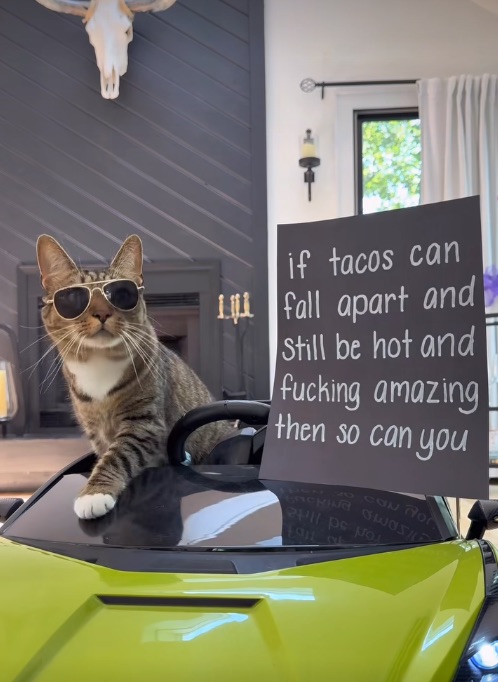 if tacos can
fall apart and
still be hot and
fucking amazing
then so can you